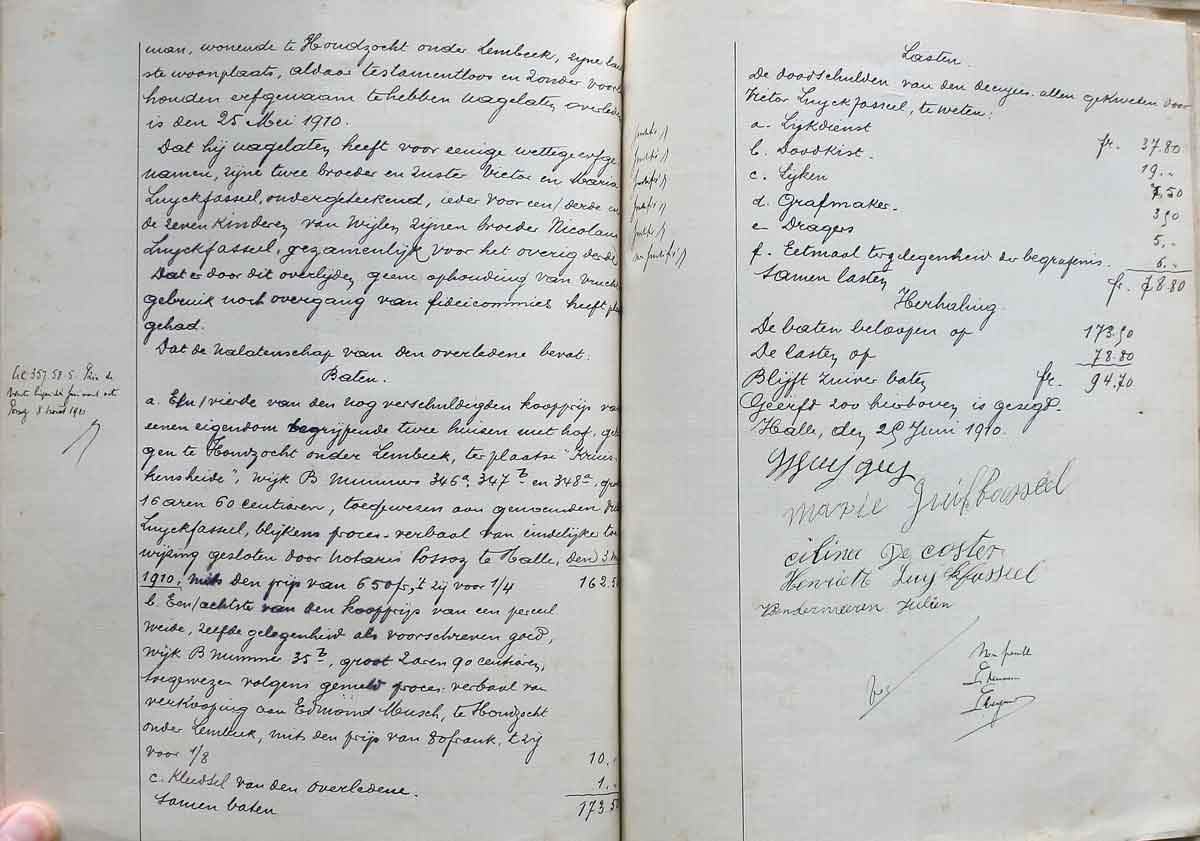 man, wonende te Hondzocht onder Lembeek, zijne laa
ste woonplaats, aldaar testamentloos en zonder voor
houden erfgenaam te hebben nagelaten overleden
is den 25 Mei 1910.
Dat hij nagelaten heeft voor eenige wettige erfge
namen, zijne twee broeder en zuster Victor en Maria
Luyckfasseel, ondergeteekend, ieder voor een/derde en
de zeven kinderen van wijlen zijnen broeder Nicolaus
Luyckfasseel, gezamenlijk voor het overig derde
Dat er door dit overlijden geene ophouding van vrucht
gebruik noch overgang van fideicommies heeft pla
gehad.
Dat de nalatenschap van den overledene bevat:
Baten.
a. Een/vierde van den nog verschuldigden koopprijs van
eenen eigendom begrijpende twee huizen met hof, gele
gen te Hondzocht onder Lembeek, ter plaatse "Kruis
kensheide", wijk B Nummers 346a, 347b en 348a, groot
16 aren 60 centiaren, toegewezen aan genoemden Vic
Luyckfasseel, blijkens proces-verbaal van eindelijke toe
wijzing gesloten door Notaris Possoz te Halle, den 3
1910, mits den prijs van 650 fr, 't zij voor 1/4 162.50
b. Een/achtste van den koopprijs van een perceel
weide, zelfde gelegenheid als voorschreven goed,
wijk B nummer 35b, groot 2 aren 90 centiaren,
toegewezen volgens gemeld proces-verbaal van
verkooping aan Edmond Musch, te Hondzocht
onder Lembeek, mits den prijs van 80 frank, 't zij
voor 1/8 10.,
c. Kleedsel van den overledene. 1.,
Samen baten 173.50
Lasten.
De doodschulden van den decujus allen gekweten door
Victor Luyckfasseel, te weten:
a. Lijkdienst fr. 37.80
b. Doodkist. 19.,
c. Lijken 7,50
d. Grafmaker. 3,50
e. Dragers 5.,
f. Eetmaal ter gelegenheid der begrafenis. 6.,
Samen lasten fr. 78.80
Herhaling.
De baten beloopen op 173.50
De lasten op 78.80
Blijft zuiver baten fr. 94.70
Geërfd zoo hierboven is gezegd.
Halle, den 25 Juni 1910.
Marie
De coster
Henriette Luyckfasseel
Vandermeeren Julien